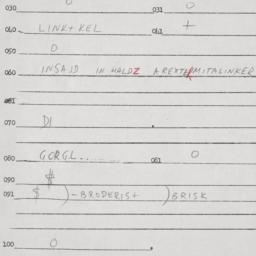 030 0 031 0
040 LINK+KEL 041 +
050 0
060 INSAID IN HALDZ AREXTRMITALINKER
061
070 DI
080 GORGL....... 081 0
090 $
091 $ )-BRODERIS+ )BRISK
100 0